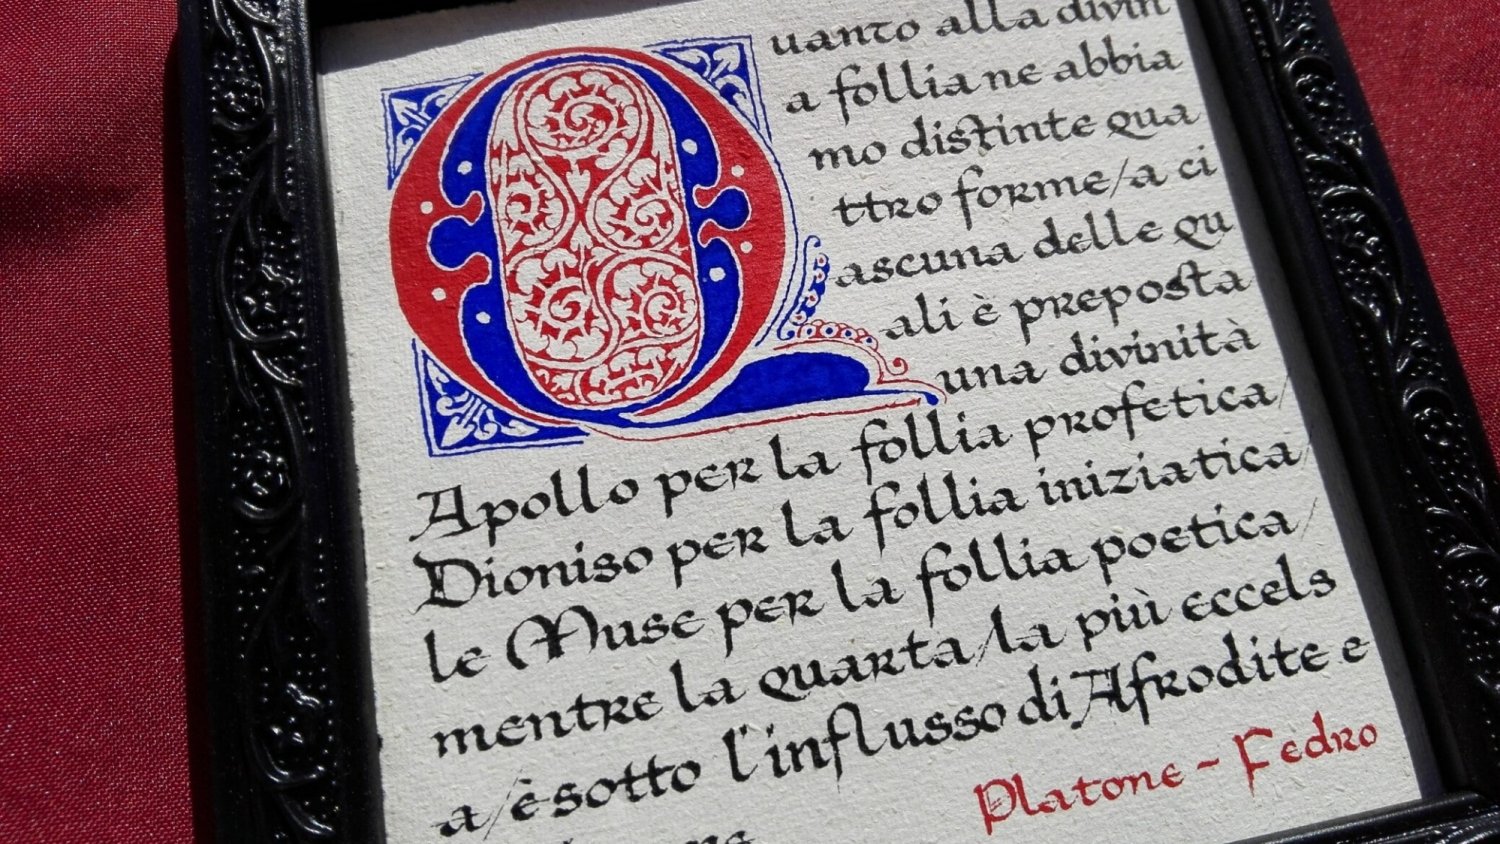 Quanto alla divin
a follia ne abbia
mo distinte qua
ttro forme/a ci
ascuna delle qu
ali è preposta
una divinità
Apollo per la follia profetica/
Dioniso per la follia iniziatica/
le Muse per la follia poetica/
mentre la quarta/la più eccels
a/è sotto l'influsso di Afrodite e
Platone - Fedro